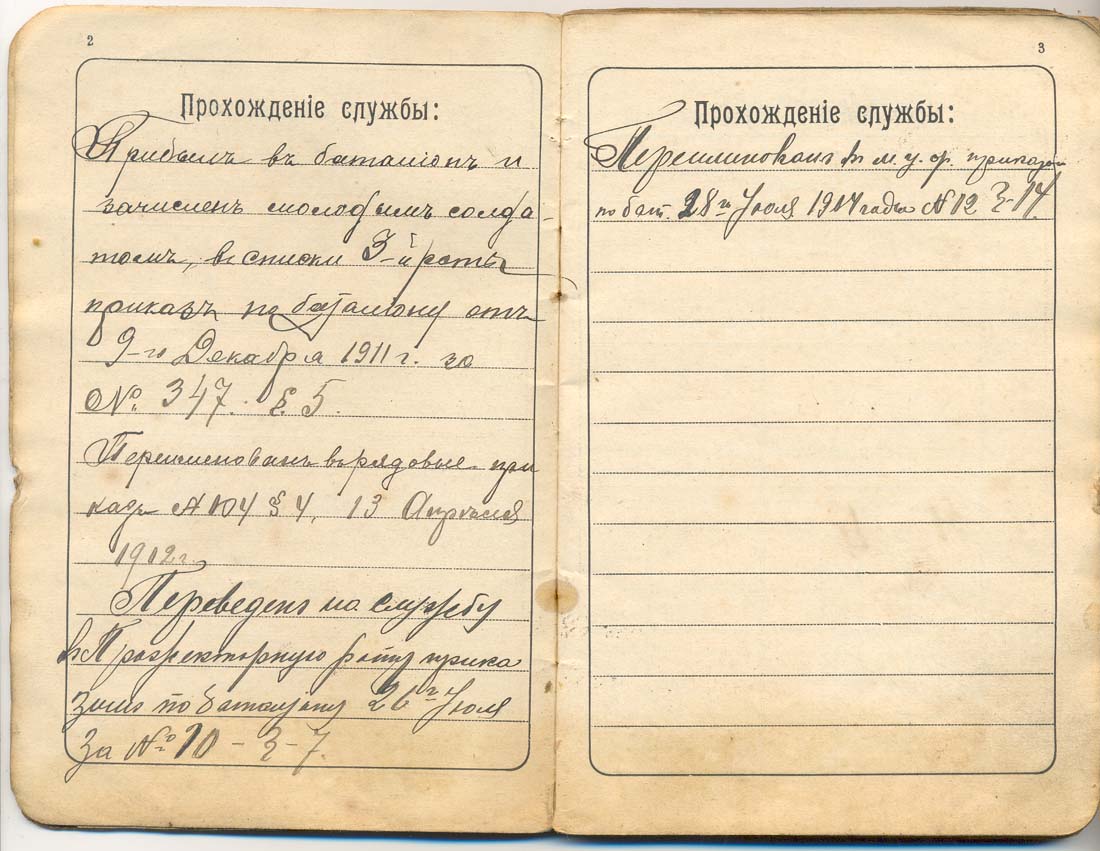 2
Прохожденіе службы:
Прибылъ въ баталіонъ и
зачисленъ молодымъ солда-
томъ, въ списки 3-й роты
приказъ по баталіону отъ
9-го Декабря 1911 г. за
№ 347. § 5.
Переименованъ въ рядовые при
казъ № 104 § 4, 13 Апрѣля
1912 г.
Переведенъ на службу
въ Прожекторную роту прика
зомъ по баталіону 26го Июля
За № 10 - § - 7.
3
Прохожденіе службы:
Переименованъ в м. у. ф. приказом
по бат. 28го Июля 1914 года № 12 § 14